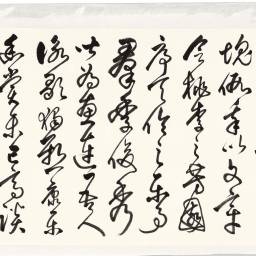 塊假我以文章
會桃李之芳園
序天倫之樂事
羣季俊秀
皆為惠連吾人
詠歌獨慚康樂
幽賞未已高談